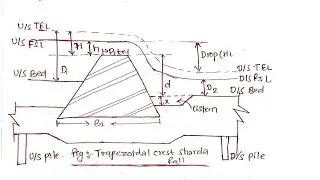 U/S TEL
U/S FSL
H
h
B+el
Drop (HL
D/S TEL
D/S FSL
U/S Bed
D1
d
D2
D/S Bed
x
Cistern
B1
U/S pile
Fig:- Trapezoidal crest sharda
fall
D/S pile